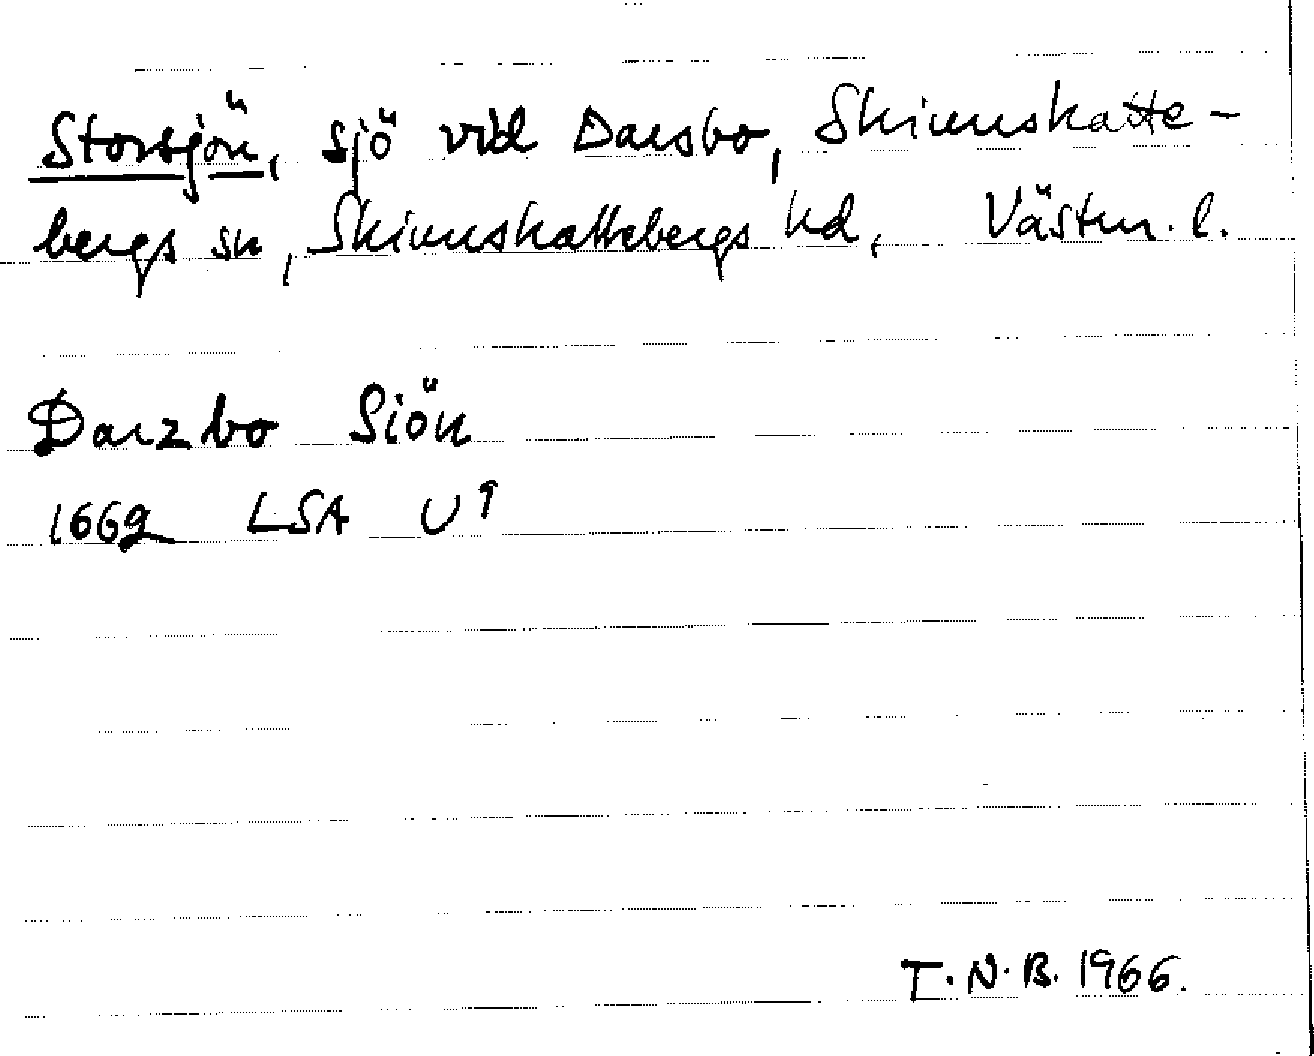 Storsjön, sjö vid Darsbo, Skinnskatte-
bergs sn, Skinnskattebergs hd, Västm. l.
Darzbo Siön
1669 LSA U9
T.N.B. 1966.